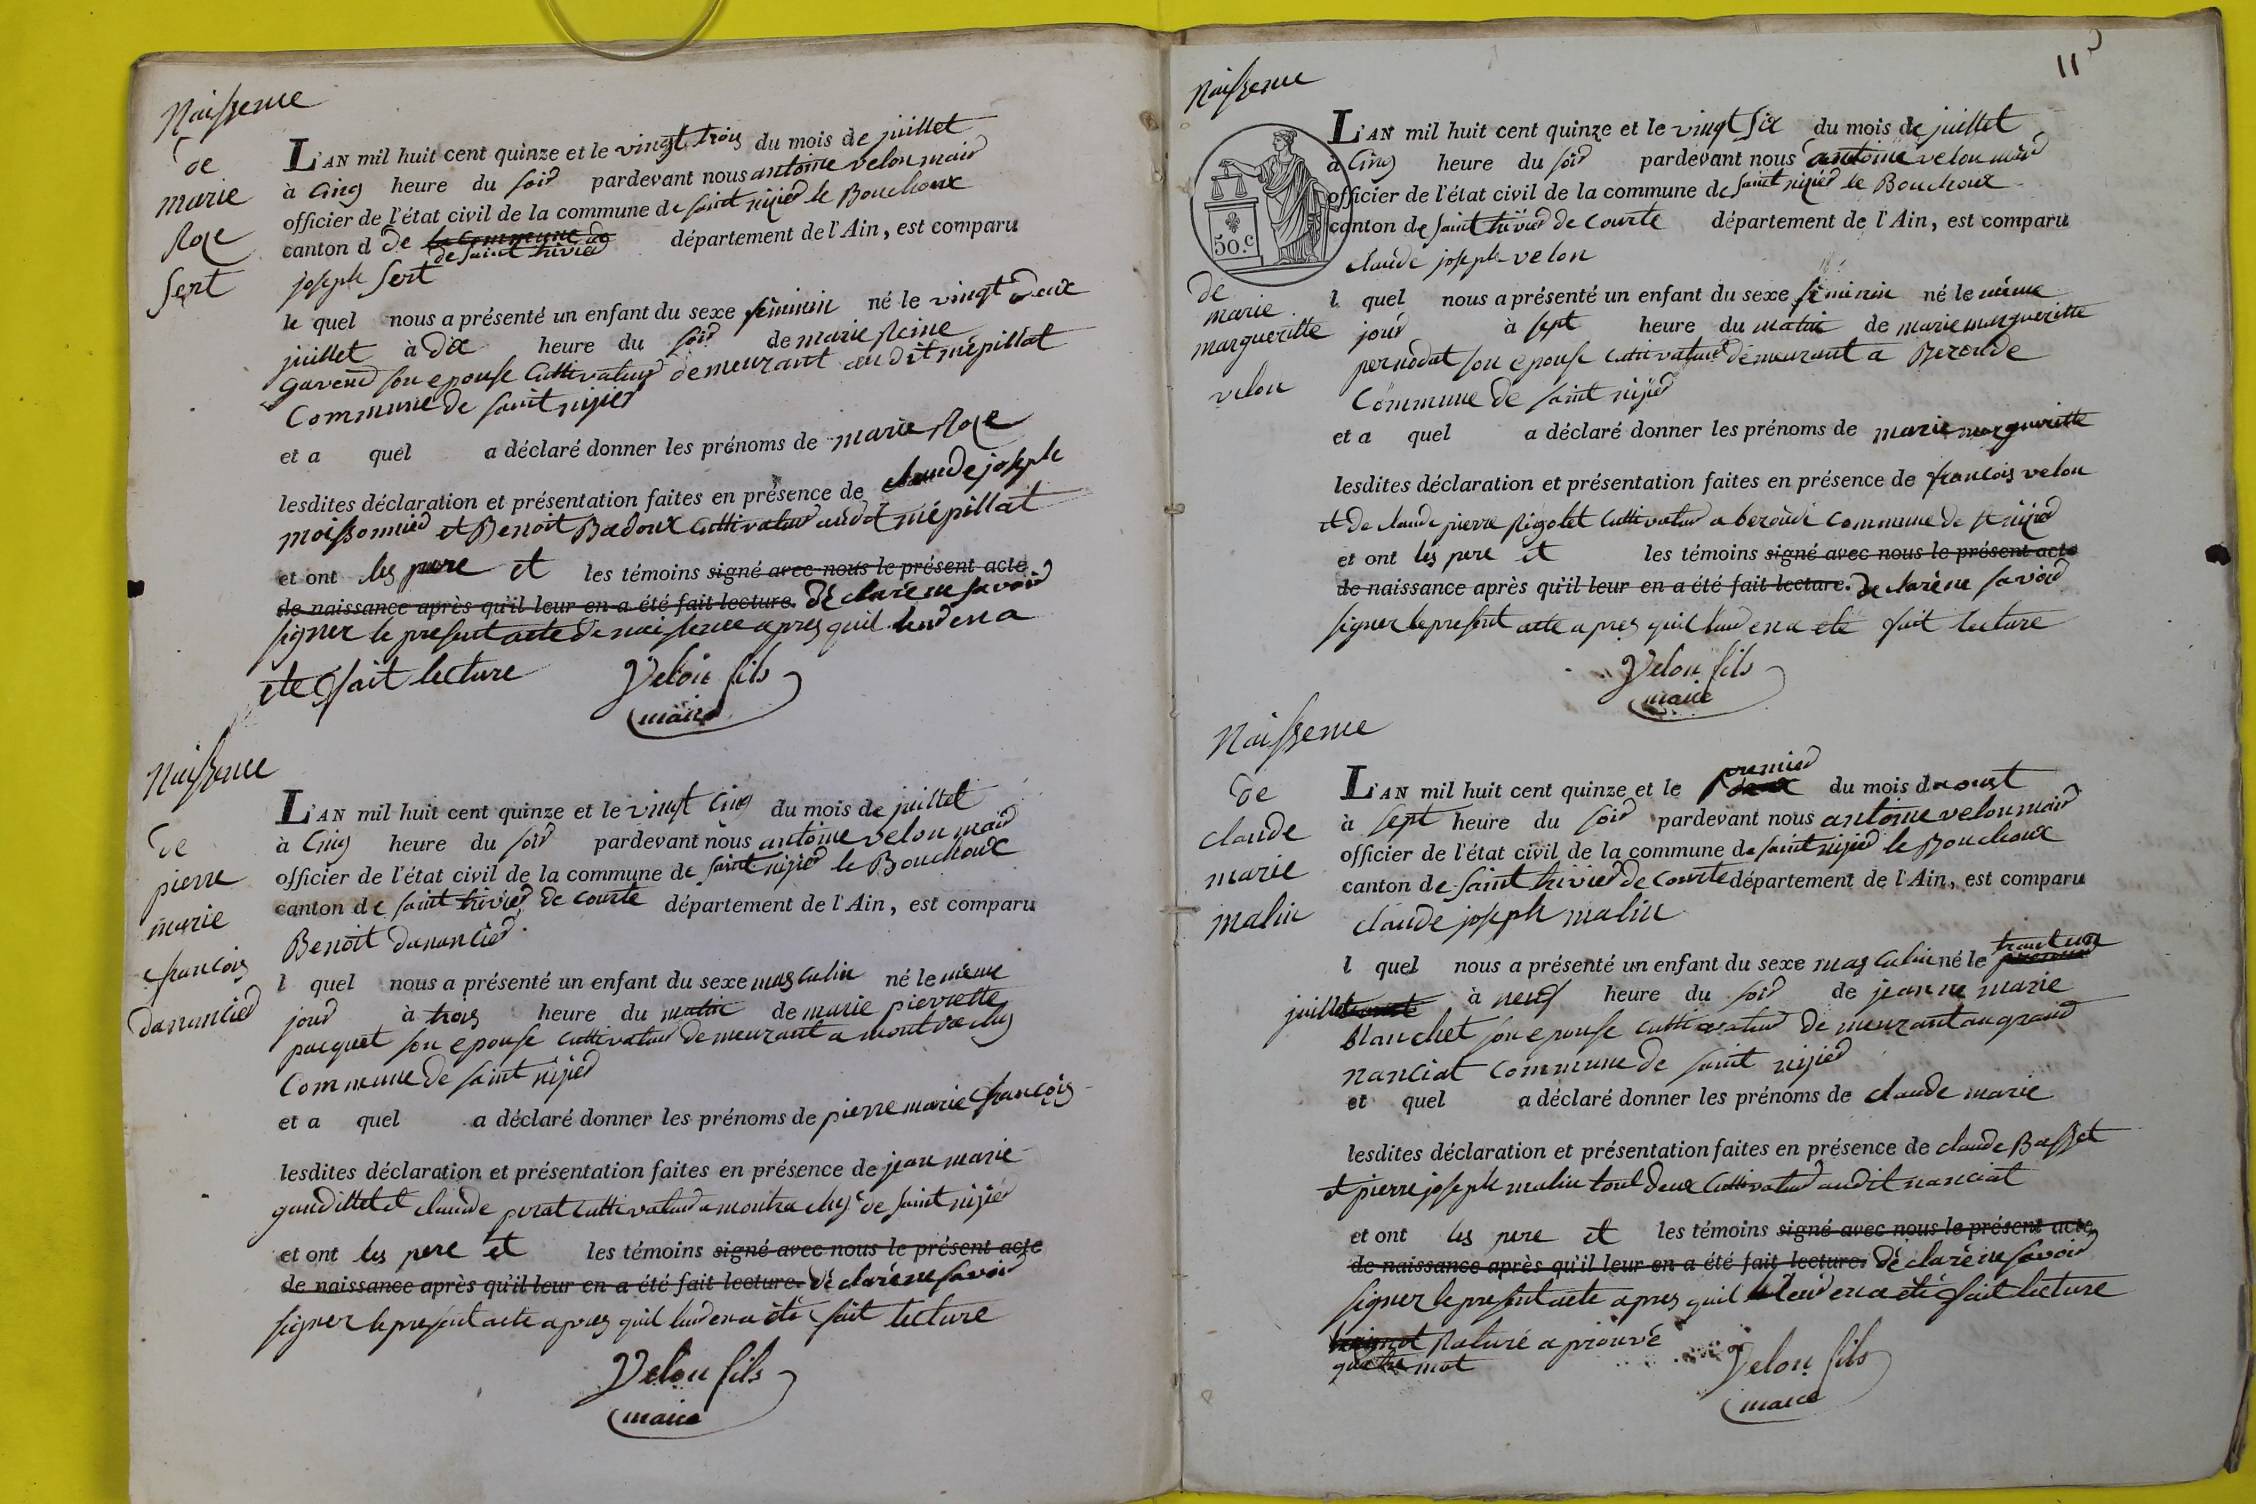 Naissence
de
marie
Roze
sert
L'AN mil huit cent quinze et le vingt trois du mois de juillet
à cinq heure du soir pardevant nous antoine velon mair
officier de l'état civil de la commune de saint nizier le Bouchoux
canton d de la commune de département de l'Ain, est comparu
de saint trivier
joseph sert
le quel nous a présenté un enfant du sexe féminin né le vingt deux
juillet à dix heure du soir de marie Reine
gavend son epouse cultivateur demeurant au dit mépillat
Commune de saint nizier
et a quel a déclaré donner les prénoms de marie Roze
lesdites déclaration et présentation faites en présence de claude joseph
moissonnier et Benoit Badoux cultivateur audit mépillat
et ont les pere et les témoins signé avec nous le présent acte
de naissance après qu'il leur en a été fait lecture. déclaré ne savoir
signer le present acte de naissence apres quil leur en a
ete fait lecture
Velon fils
maire
Naissence
de
pierre
marie
francois
danancier
L'AN mil huit cent quinze et le vingt cinq du mois de juillet
à cinq heure du soir pardevant nous antoine velon mair
officier de l'état civil de la commune de saint nizier le Bouchoux
canton de saint trivier de courte département de l'Ain, est comparu
Benoit danancier
l quel nous a présenté un enfant du sexe masculin né le même
jour à trois heure du matin de marie pierrette
pacquet son epouse cultivateur demeurant a
Commune de saint nizier
et a quel a déclaré donner les prénoms de pierre marie francois
lesdites déclaration et présentation faites en présence de jean marie
gaudillet et claude perat cultivateur a de saint nizier
et ont les pere et les témoins signé avec nous le présent acte
de naissance après qu'il leur en a été fait lecture. déclaré ne savoir
signer le present acte apres quil leur en a été fait lecture
Velon fils
maire
11
Naissence
50.c
de
marie
margueritte
velon
L'AN mil huit cent quinze et le vingt six du mois de juillet
à cinq heure du soir pardevant nous antoine velon mair
officier de l'état civil de la commune de saint nizier le Bouchoux
canton de saint trivier de courte département de l'Ain, est comparu
claude joseph velon
l quel nous a présenté un enfant du sexe féminin né le même
jour à sept heure du matin de marie margueritte
pernodat son epouse cultivateur demeurant a Beroude
Commune de saint nizier
et a quel a déclaré donner les prénoms de marie margueritte
lesdites déclaration et présentation faites en présence de francois velon
et de claude pierre Rigolet cultivateur a beroude commune de st nizier
et ont les pere et les témoins signé avec nous le présent acte
de naissance après qu'il leur en a été fait lecture. declaré ne savoir
signer le present acte apres quil leur en a eté fait lecture
Velon fils
maire
Naissence
de
claude
marie
malin
premier
L'AN mil huit cent quinze et le deux du mois daoust
à sept heure du soir pardevant nous antoine velon mair
officier de l'état civil de la commune de saint nizier le Bouchoux
canton de saint trivier de courte département de l'Ain, est comparu
claude joseph malin
trant un
l quel nous a présenté un enfant du sexe masculin né le premier
juillet aoust à neuf heure du soir de jeanne marie
blanchet son epouse cultivateur demeurant au grand
nanciat commune de saint nizier
et quel a déclaré donner les prénoms de claude marie
lesdites déclaration et présentation faites en présence de claude Basset
et pierre joseph malin tout deux cultivateur audit nanciat
et ont les pere et les témoins signé avec nous le présent acte
de naissance après qu'il leur en a été fait lecture. déclaré ne savoir
signer le present acte apres quil leur en a été fait lecture
Raturé a prouvé
quatre mot
Velon fils
maire